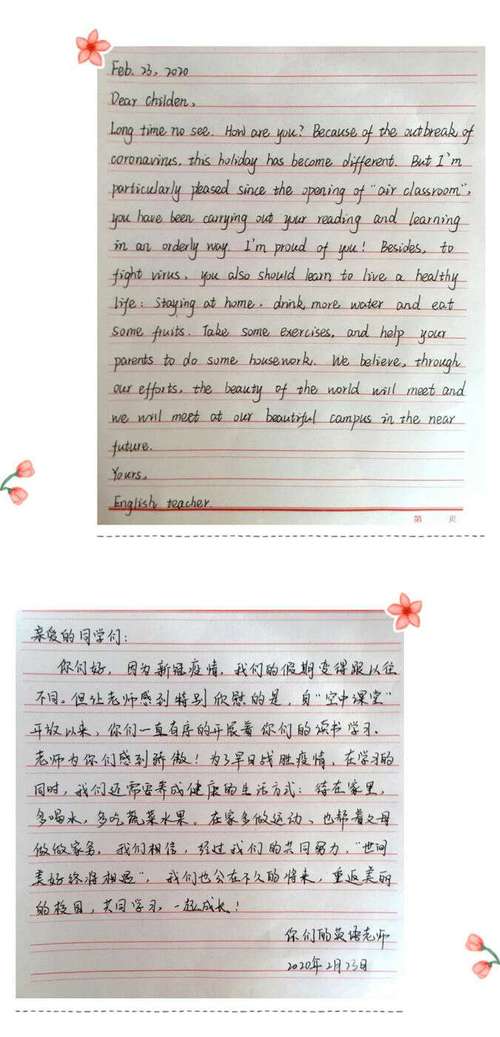 Feb. 23, 2020
Dear childen,
Long time no see. How are you? Because of the outbreak of
coronavirus, this holiday has become different. But I'm
particularly pleased since the opening of "air classroom",
you have been carrying out your reading and learning
in an orderly way. I'm proud of you! Besides, to
fight virus, you also should learn to live a healthy
life: Staying at home, drink more water and eat
some fruits. Take some exercises, and help your
parents to do some housework. We believe, through
our efforts, the beauty of the world will meet and
we will meet at our beautiful campus in the near
future.
Yours,
English teacher.
第 页
亲爱的同学们:
你们好,因为新冠疫情,我们的假期变得跟以往
不同。但让老师感到特别欣慰的是,自"空中课堂"
开放以来,你们一直有序的开展着你们的读书学习.
老师为你们感到骄傲!为了早日战胜疫情,在学习的
同时,我们还需要养成健康的生活方式:待在家里,
多喝水,多吃蔬菜水果,在家多做运动、也帮着父母
做做家务。我们相信,经过我们的共同努力,"世间
美好终将相遇",我们也会在不久的将来,重返美丽
的校园,共同学习,一起成长!
你们的英语老师
2020年2月23日